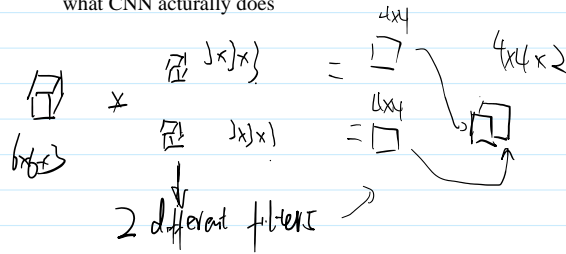 what CNN acturally does
4x4
3x3x3 =
4x4x2
*
4x4
6x6x3
3x3x3 =
2 different filters